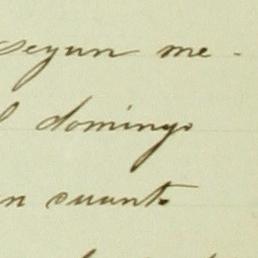 segun me-
l domingo
n cuanto